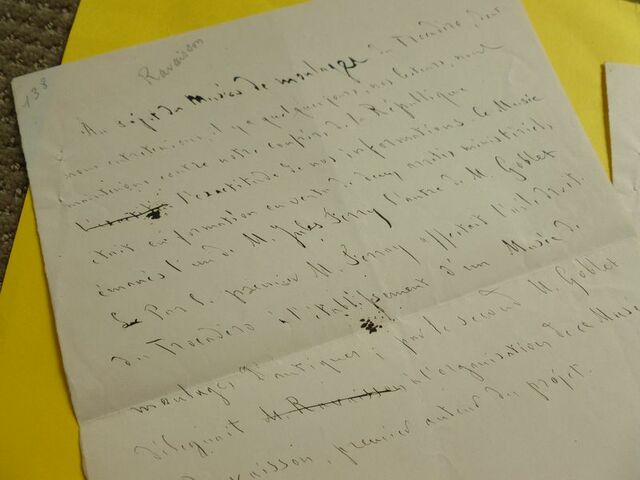 138
Ravaisson
Au sujet du Musée de moulages du Trocadéro, dont
nous entretenions, il y a quelques jours, nos lecteurs, nous
maintenons contre notre confrère de la République
l'exactitude de nos informations. Ce Musée
était en formation en vertu de deux arrêtés ministériels,
émanés l'un de M. Jules Ferry l'autre de M. Goblet
Par le premier M. Ferry affectait l'aile droite
du Trocadéro à l'établissement d'un Musée de
moulages d'antiques ; par le second M. Goblet
déléguait M. Ravaisson à l'organisation de ce Musée
Ravaisson, premier auteur du projet.